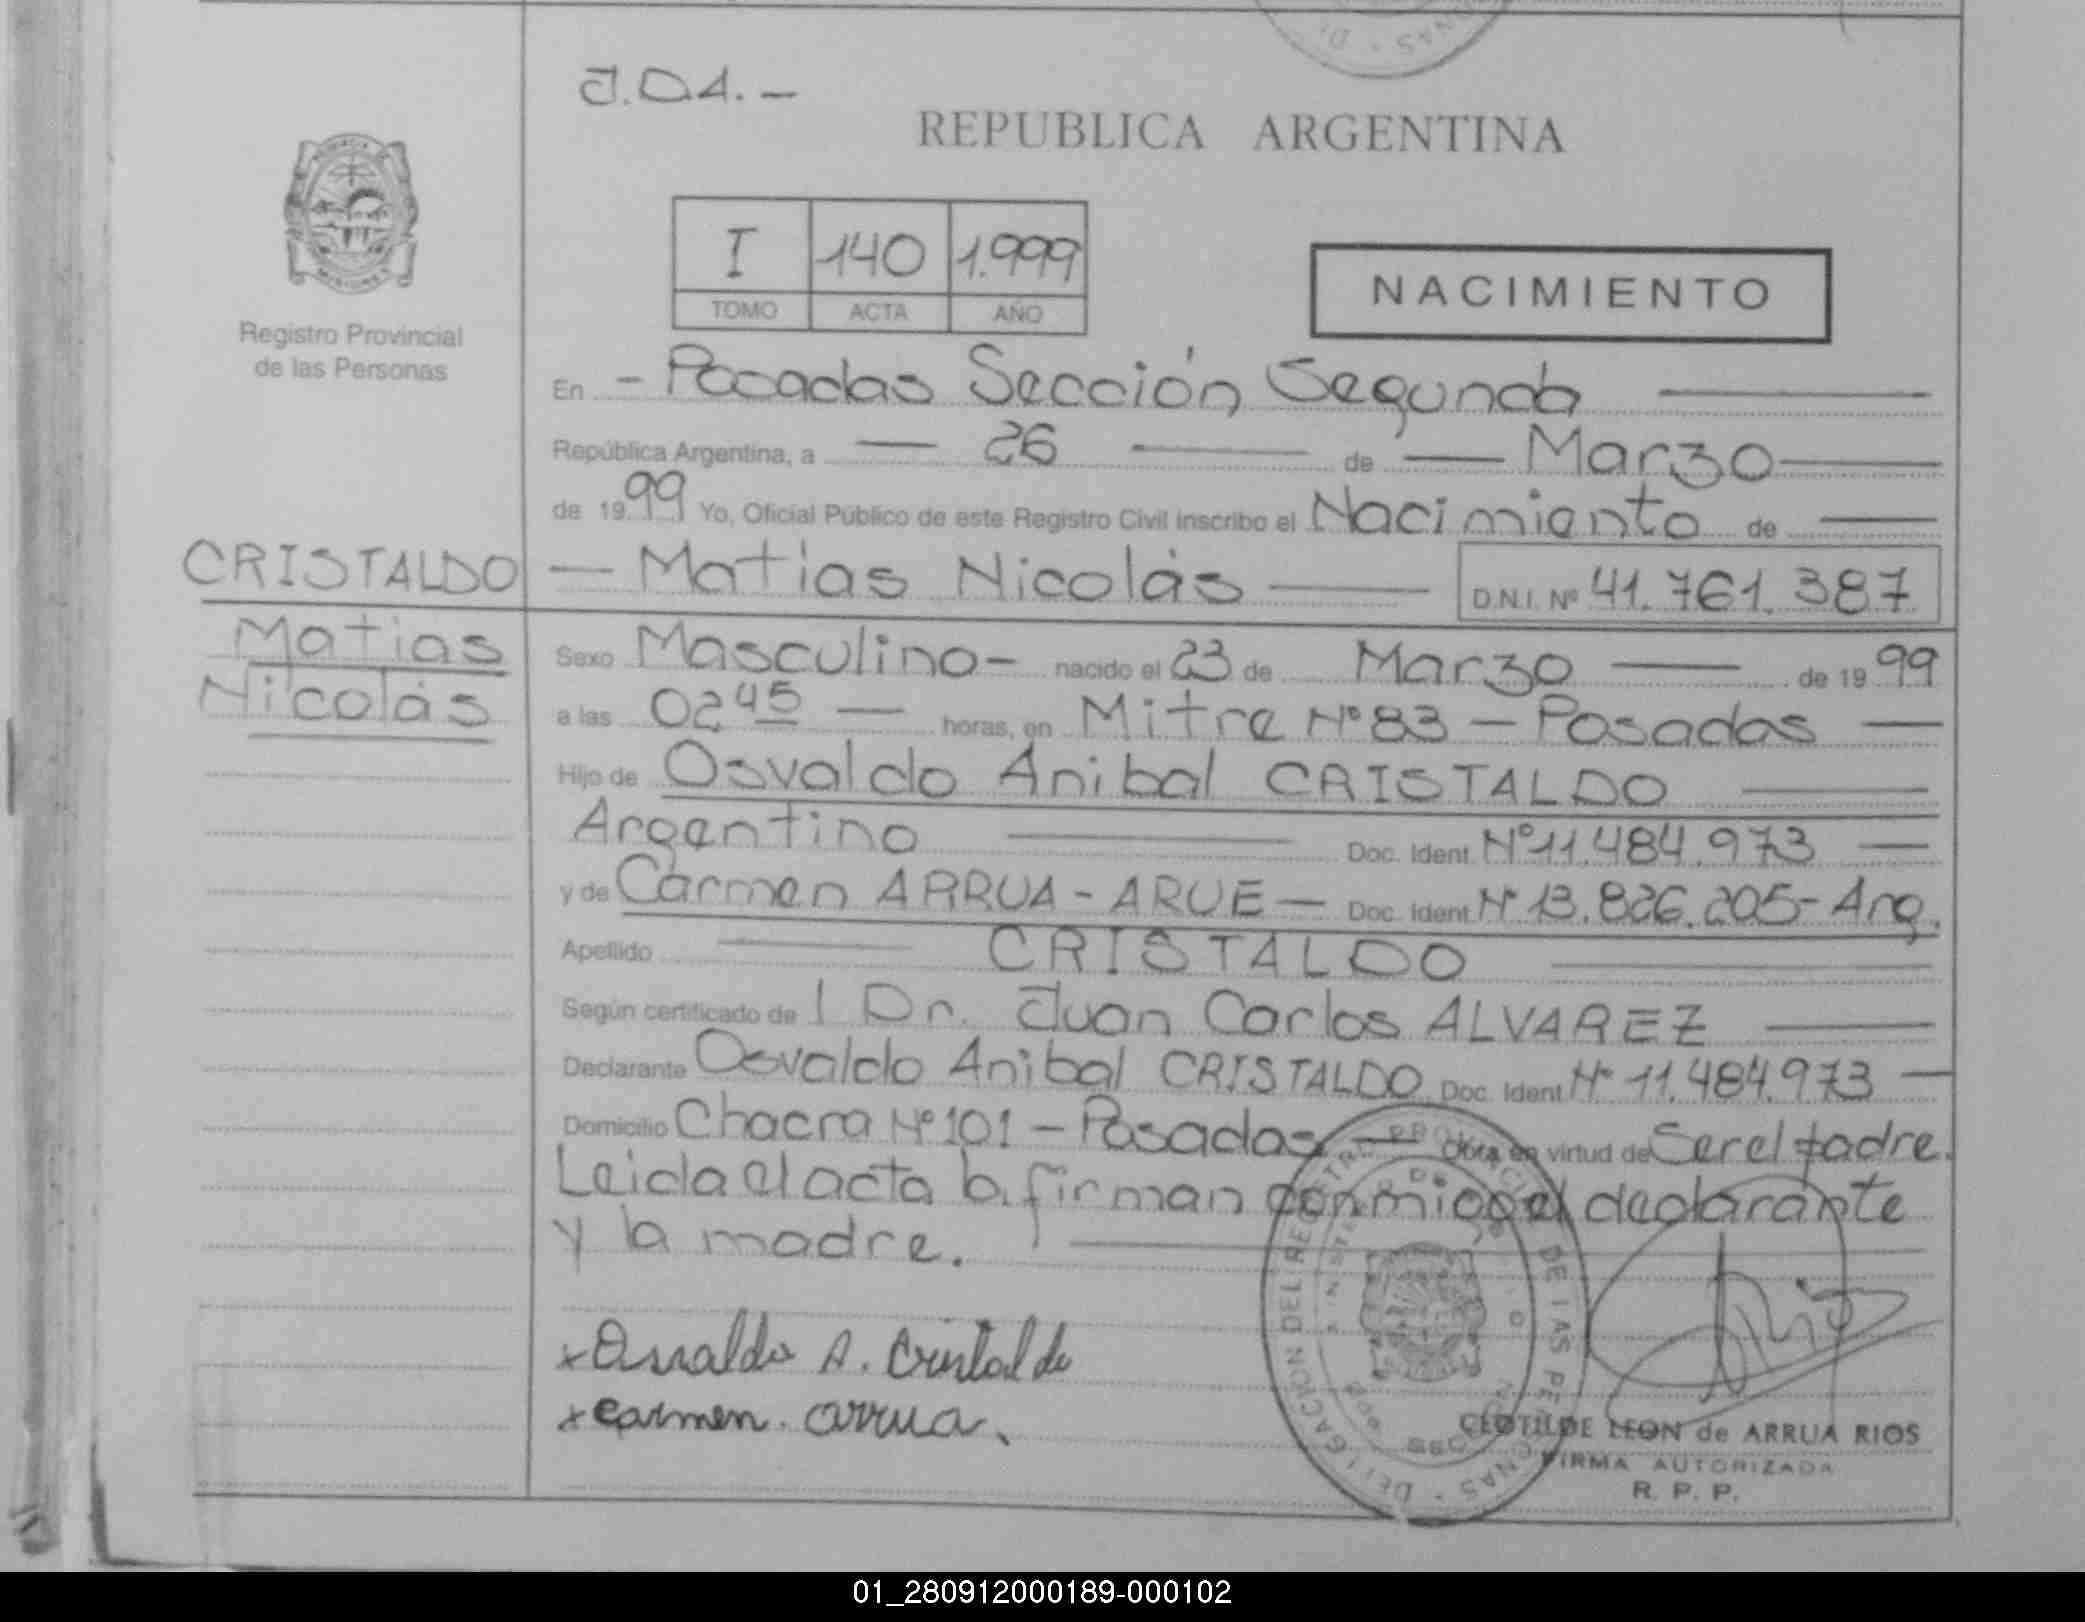 J.D.A.-
REPUBLICA ARGENTINA
I 140 1.999
TOMO ACTA AÑO
NACIMIENTO
Registro Provincial
de las Personas
En - Posadas Sección Segunda
República Argentina, a 26 de Marzo
de 1999 Yo, Oficial Público de este Registro Civil inscribo el Nacimiento de
CRISTALDO
Matias
Nicolás
Matias Nicolás D.N.I. Nº 41.761.387
Sexo Masculino- nacido el 23 de Marzo de 1999
a las 02 45 horas, en Mitre Nº 83 - Posadas
Hijo de Osvaldo Anibal CRISTALDO
Argentino Doc. Ident. Nº 11.484.973
y de Carmen ARRUA - ARUE - Doc. Ident. Nº 13.826.205- Arg.
Apellido CRISTALDO
Según certificado de l Dr. Juan Carlos ALVAREZ
Declarante Osvaldo Anibal CRISTALDO Doc. Ident. Nº 11.484.973
Domicilio Chacra Nº 101 - Posadas Obra en virtud de Ser el padre.
Leida el acta la firman conmigo el declarante
y la madre.
x Osvaldo A. Cristaldo
x carmen. arrua.
CLOTILDE LEON de ARRUA RIOS
FIRMA AUTORIZADA
R. P. P.
01_280912000189-000102